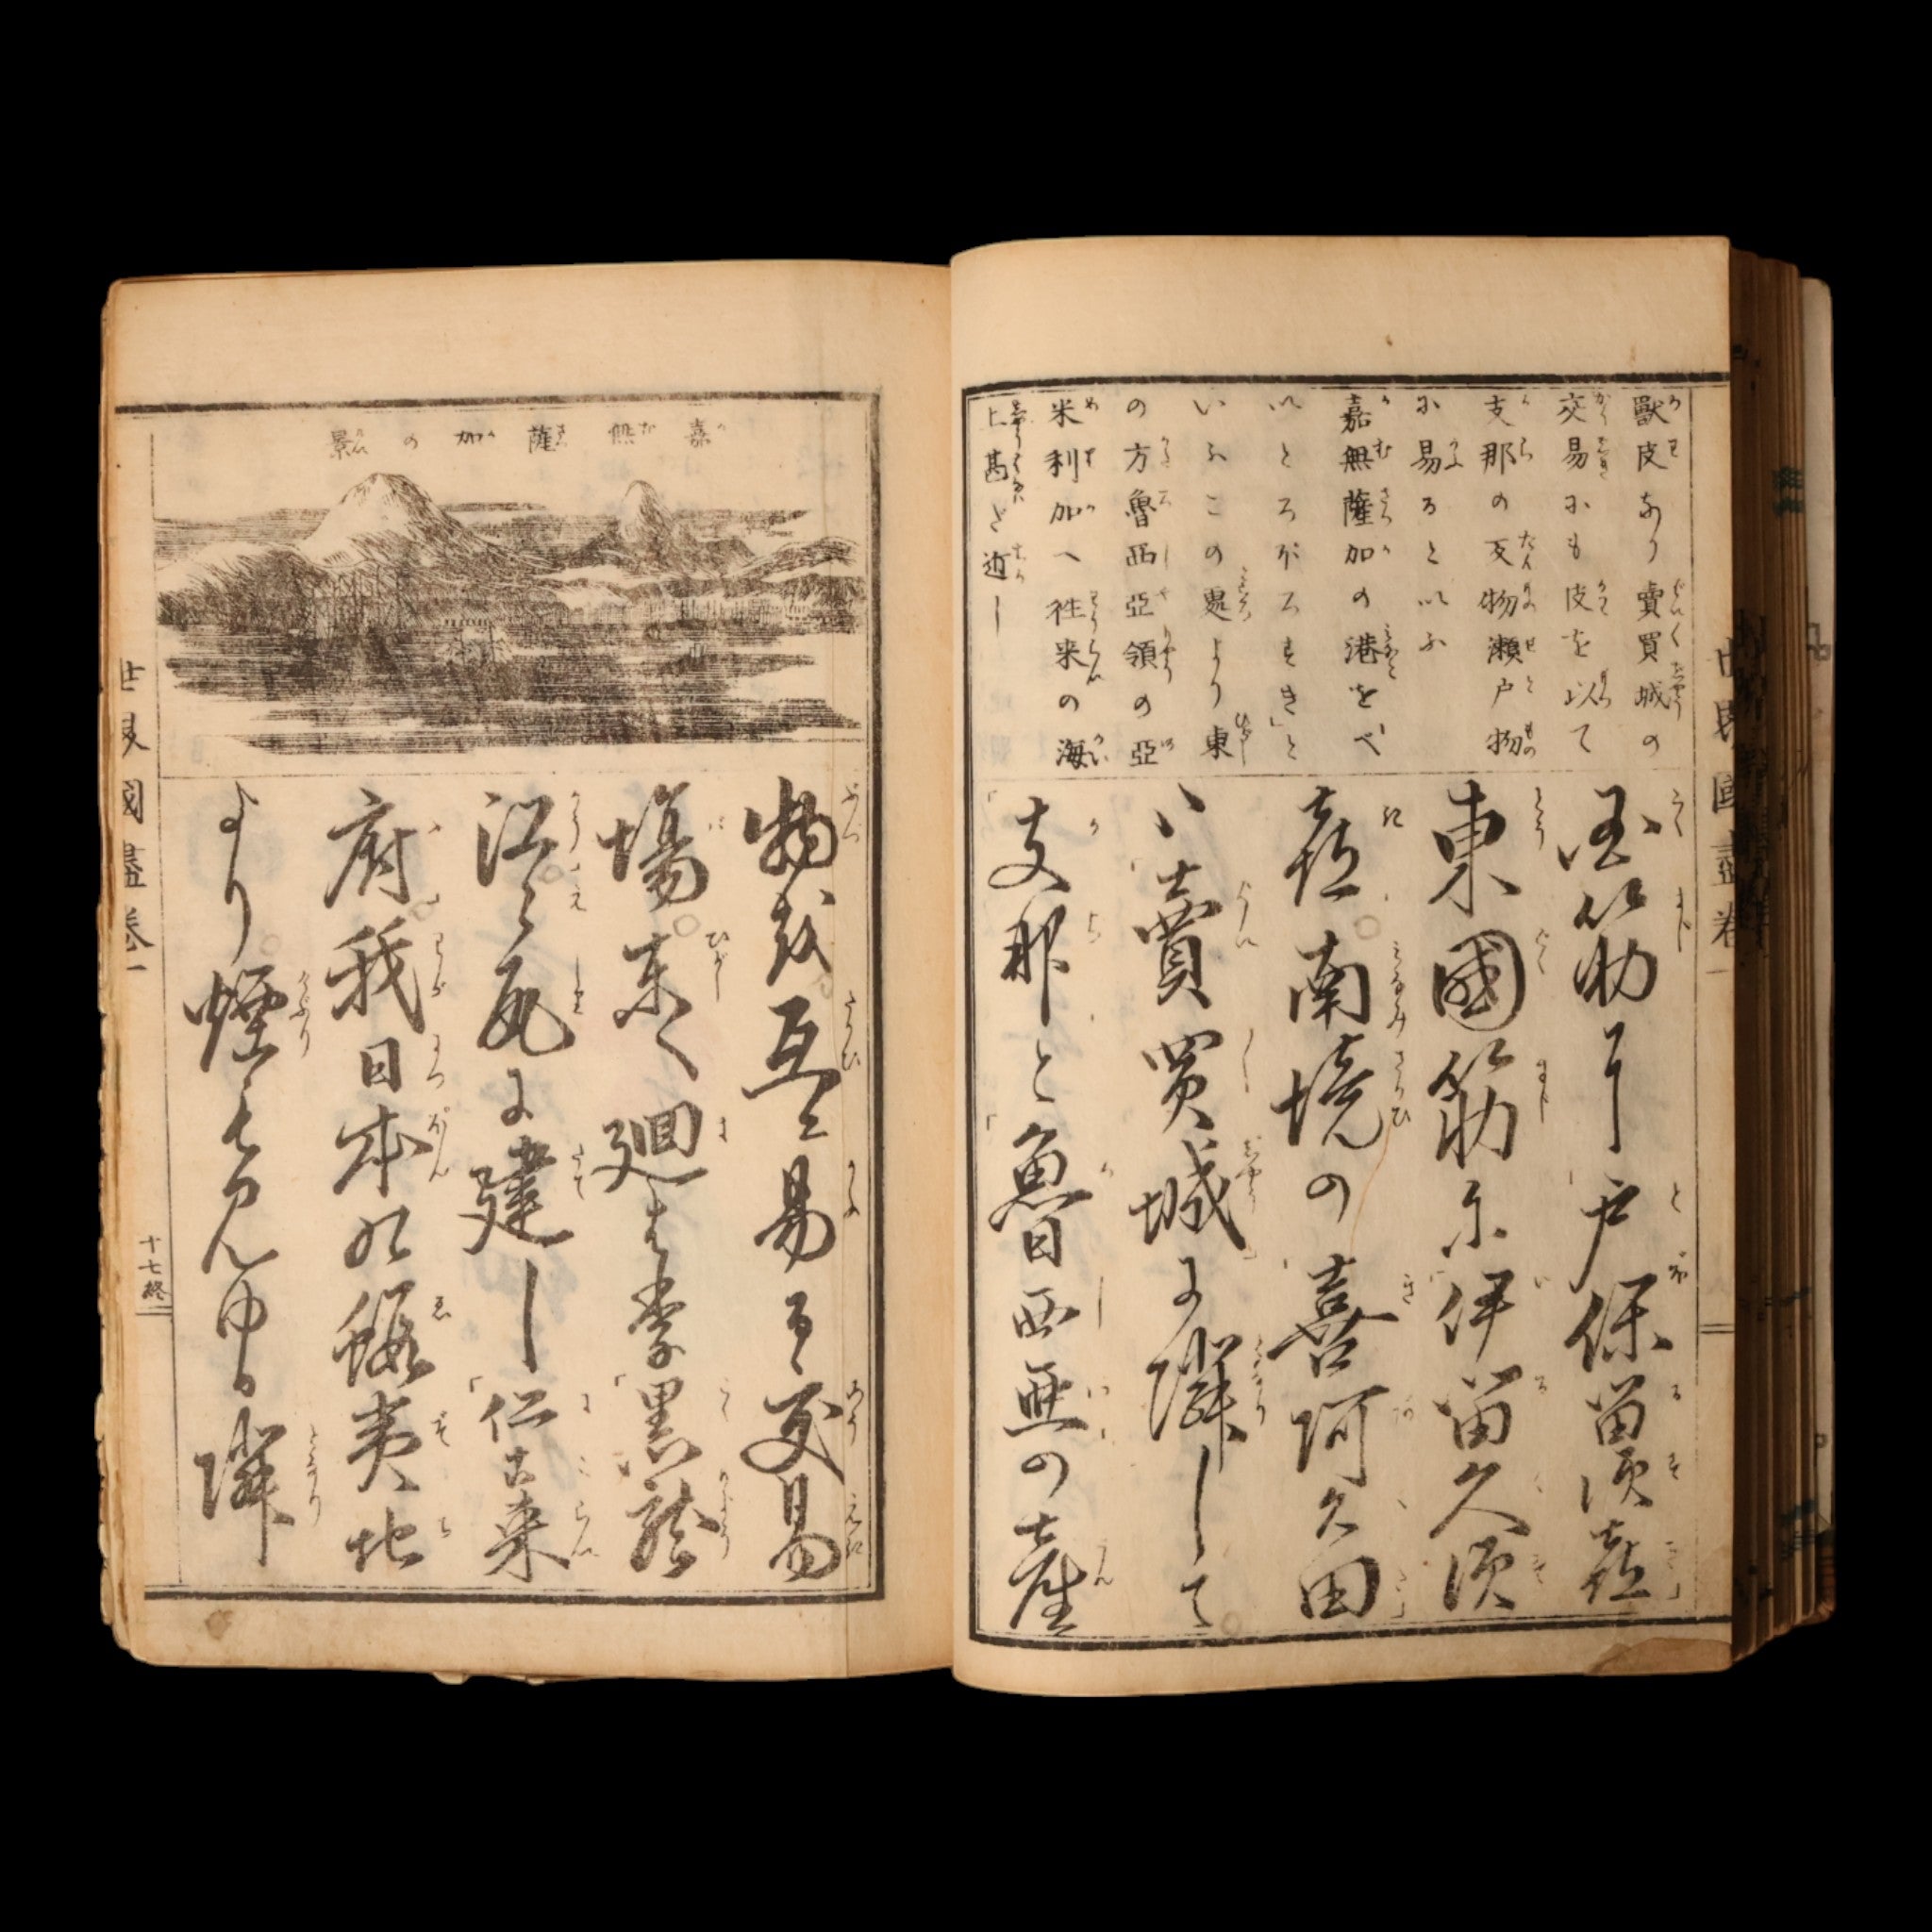 獸皮あり賣買城の
交易にも皮を以て
支那の反物瀬戸物
に易ると以ふ
嘉無薩加の港をぺ
いとろぱろすき」と
いふこの處より東
の方魯西亞領の亞
米利加へ徃来の海
上甚だ近し
國筋耳戸保留須喜
東國筋尓伊留久須
喜南境の喜阿久田
ハ賣買城よ隣して
支那と魯西亜の産
嘉無薩加の景
物越互に易る交易
場東へ廻せ黒龍
江く尻よ建し仁古来
府我日本の蝦夷地
より煙も見ゆる隣
世界國盡 巻一
十七終